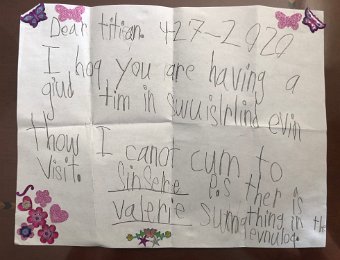 Dear titian. 427-2020
I hop you are having a
giud tim in swuislrlind evin
thow I canot cum to
visit.
Sinsere P.S ther is
Valerie sumathing in the
evnulog.